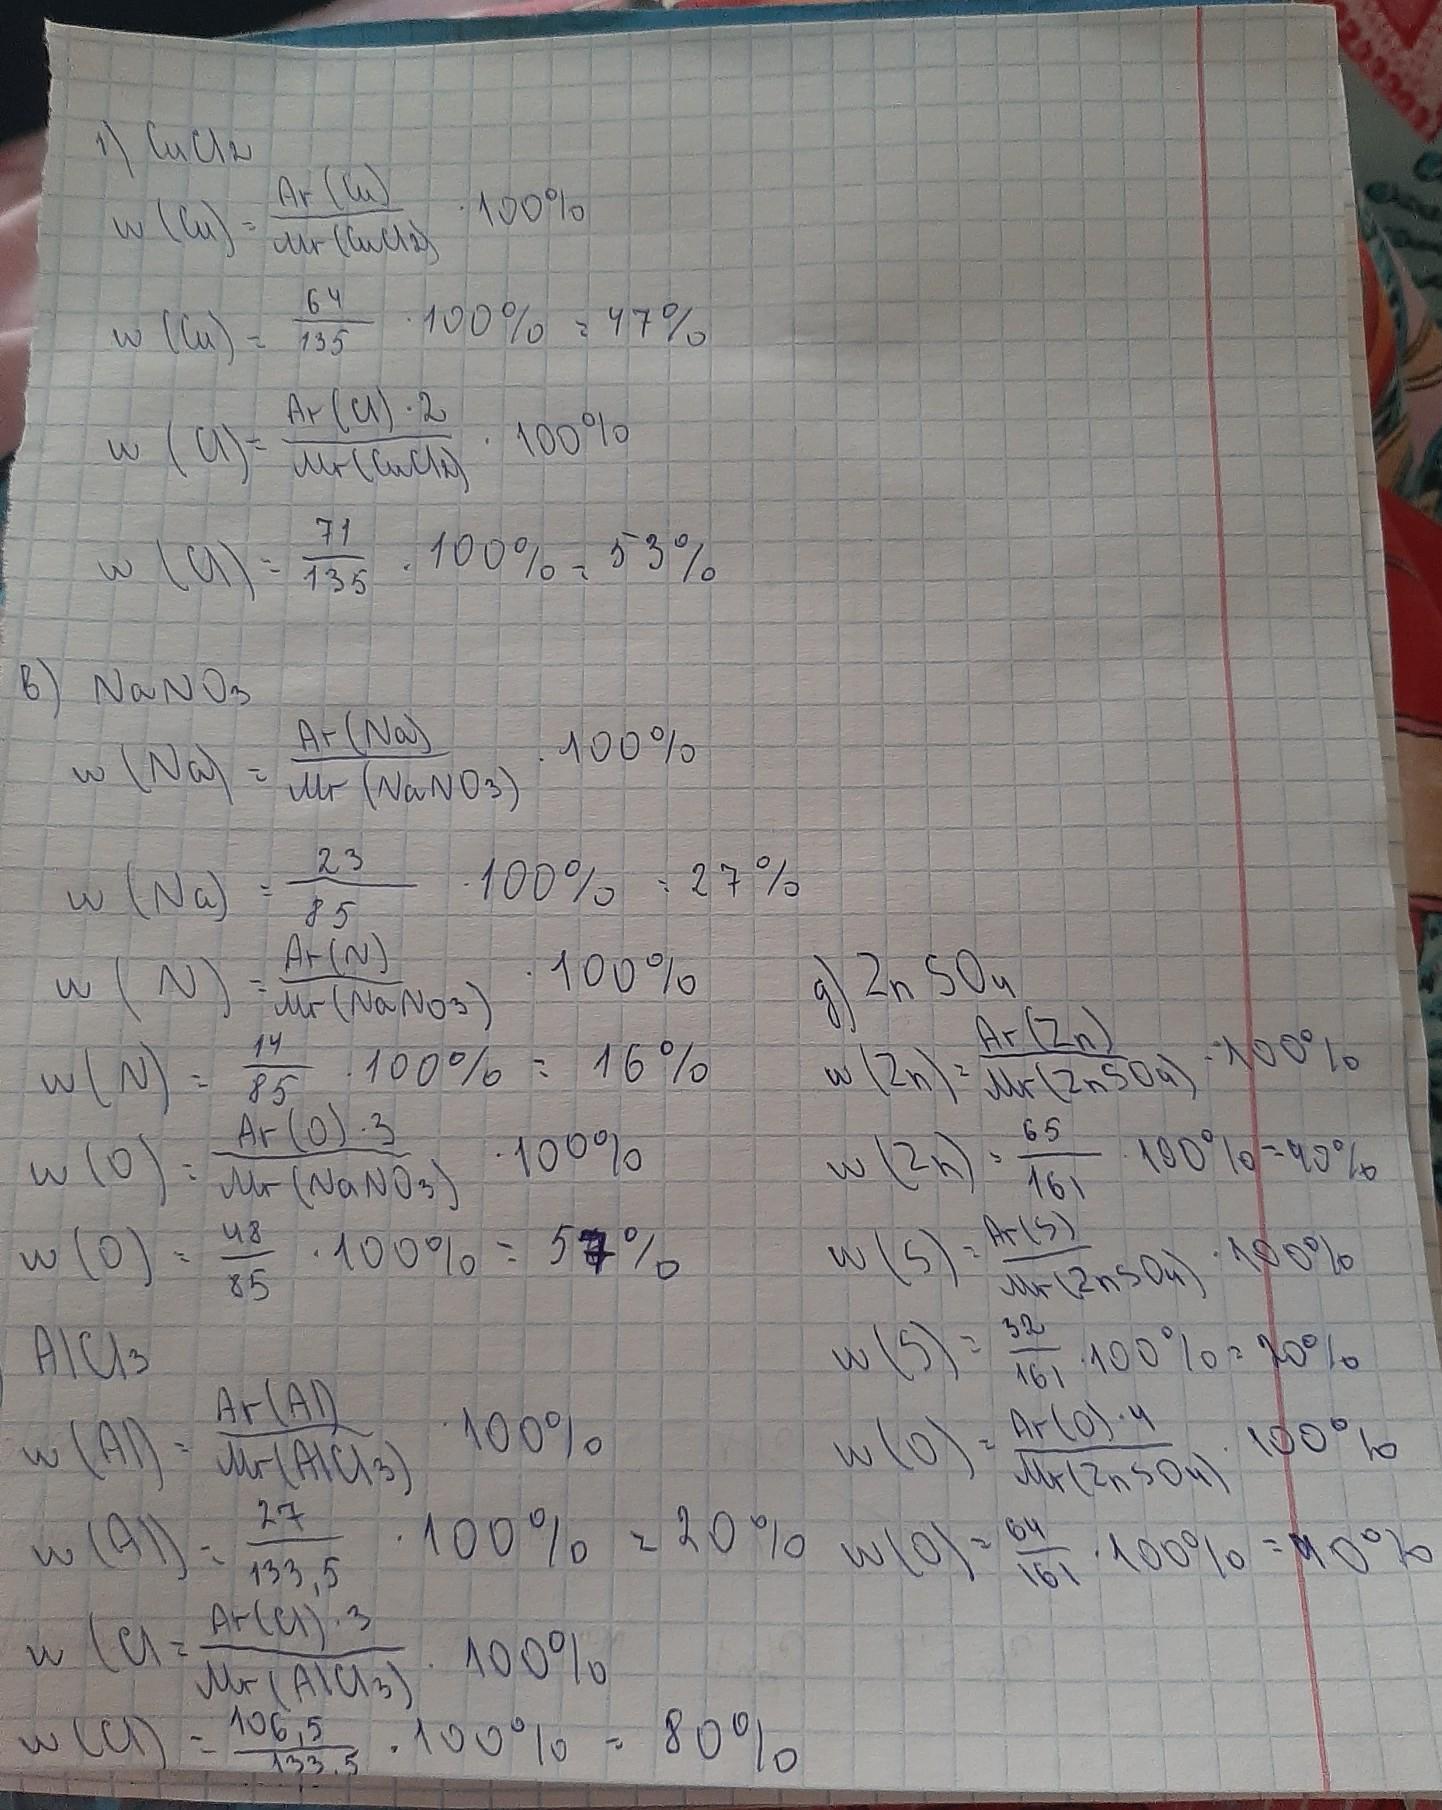 1) CuCl2
w (Cu) = Ar (Cu) / Mr (CuCl2) · 100%
w (Cu) = 64 / 135 · 100% = 47%
w (Cl) = Ar (Cl) · 2 / Mr (CuCl2) · 100%
w (Cl) = 71 / 135 · 100% = 53%
в) NaNO3
w (Na) = Ar (Na) / Mr (NaNO3) · 100%
w (Na) = 23 / 85 · 100% = 27%
w (N) = Ar (N) / Mr (NaNO3) · 100%
w (N) = 14 / 85 · 100% = 16%
w (O) = Ar (O) · 3 / Mr (NaNO3) · 100%
w (O) = 48 / 85 · 100% = 57%
AlCl3
w (Al) = Ar (Al) / Mr (AlCl3) · 100%
w (Al) = 27 / 133,5 · 100% = 20%
w (Cl = Ar (Cl) · 3 / Mr (AlCl3) · 100%
w (Cl) = 106,5 / 133,5 · 100% = 80%
д) ZnSO4
w (Zn) = Ar (Zn) / Mr (ZnSO4) · 100%
w (Zn) = 65 / 161 · 100% = 40%
w (S) = Ar (S) / Mr (ZnSO4) · 100%
w (S) = 32 / 161 · 100% = 20%
w (O) = Ar (O) · 4 / Mr (ZnSO4) · 100%
w (O) = 64 / 161 · 100% = 40%